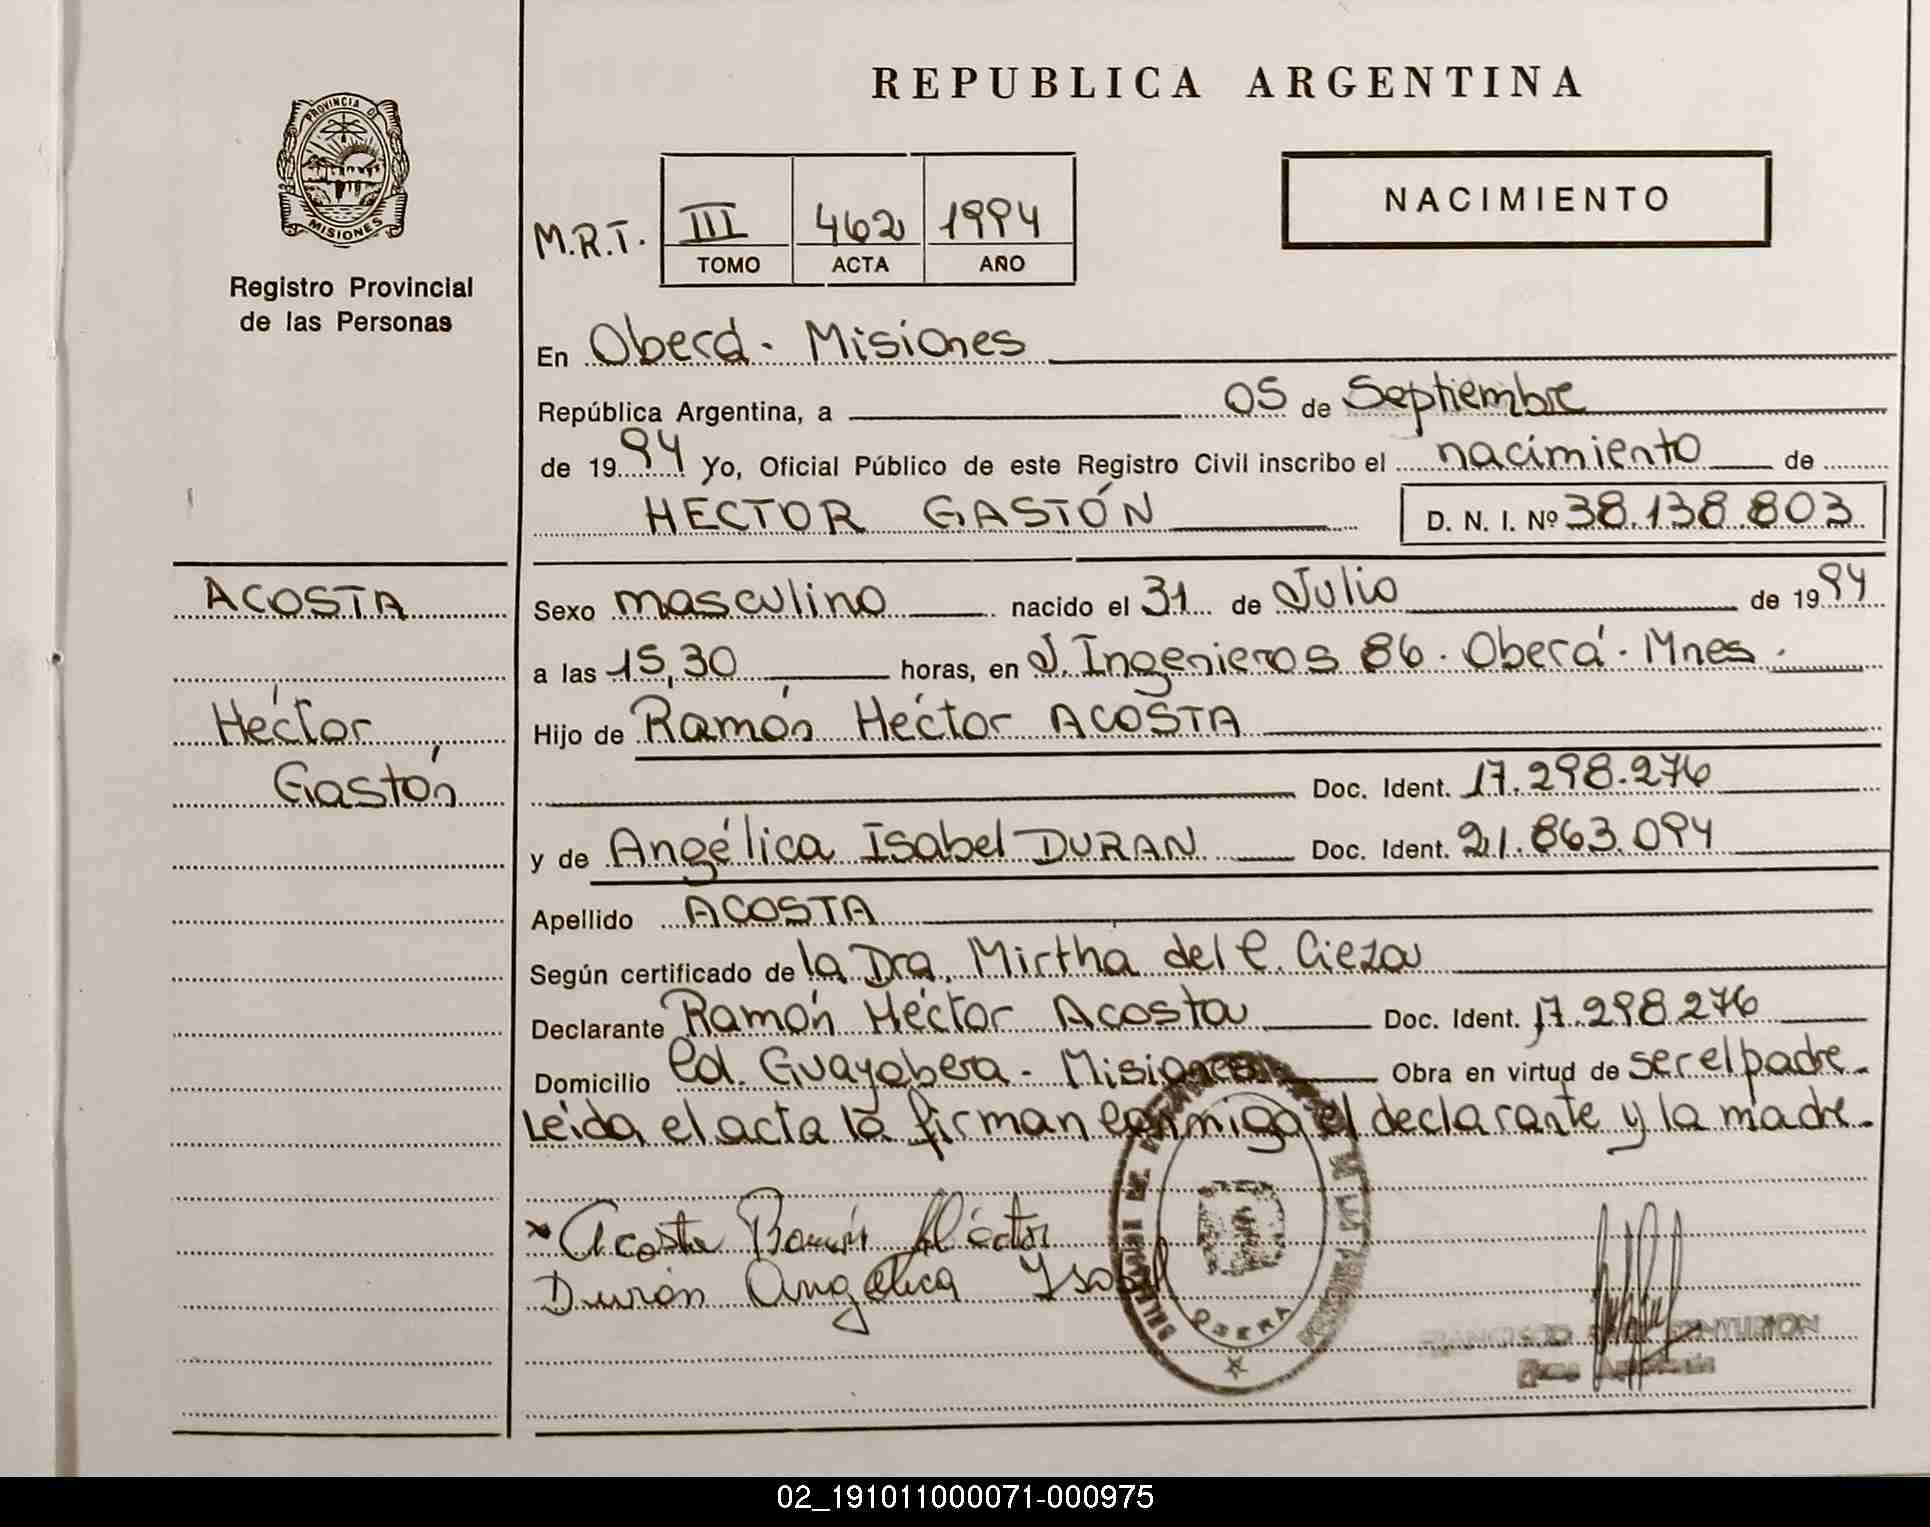 REPUBLICA ARGENTINA
PROVINCIA DE
MISIONES
Registro Provincial
de las Personas
NACIMIENTO
M.R.T. III 462 1994
TOMO ACTA AÑO
En Oberá - Misiones
República Argentina, a 05 de Septiembre
de 1994 Yo, Oficial Público de este Registro Civil inscribo el nacimiento de
HECTOR GASTÓN D. N. I. Nº 38.138.803
ACOSTA
Héctor
Gastón
Sexo masculino nacido el 31 de Julio de 1994
a las 15,30 horas, en J. Ingenieros 86 - Oberá - Mnes.
Hijo de Ramón Héctor ACOSTA
Doc. Ident. 17.298.276
y de Angélica Isabel DURAN Doc. Ident. 21.863.094
Apellido ACOSTA
Según certificado de la Dra. Mirtha del C. Cieza
Declarante Ramón Héctor Acosta Doc. Ident. 17.298.276
Domicilio Cd. Guayabera - Misiones Obra en virtud de ser el padre.
Leída el acta la firman conmigo el declarante y la madre.
x Acosta Ramón Héctor
Durán Angélica Ysabel
OBERA
FRANCISCO CENTURION
02_191011000071-000975